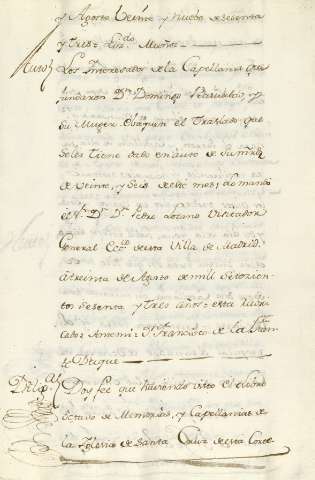 y Agosto Veinte y Nuebe de Sesenta
y Tres= Lizdo. Muñoz
Auto) Los Interesados de la Capellania que
fundaron Dn. Domingo y
Su Muger el Traslado que
se les tiene dado en auto de
de Veinte, y Seis de este mes; lo mando
el Sr. Dr. Dn. Pedro Lozano Visitador
General Ecco. de esta Villa de Madrid
a treinta de Agosto de mil Setezien-
tos Sesenta y Tres años= esta rubri-
cado= Antemi= Francisco de la
Duque
Dilig.a) Doy fee que haviendo visto el Libro
Bezerro de Memorias, y Capellanias de
la Iglesia de Santa Cruz de esta Corte